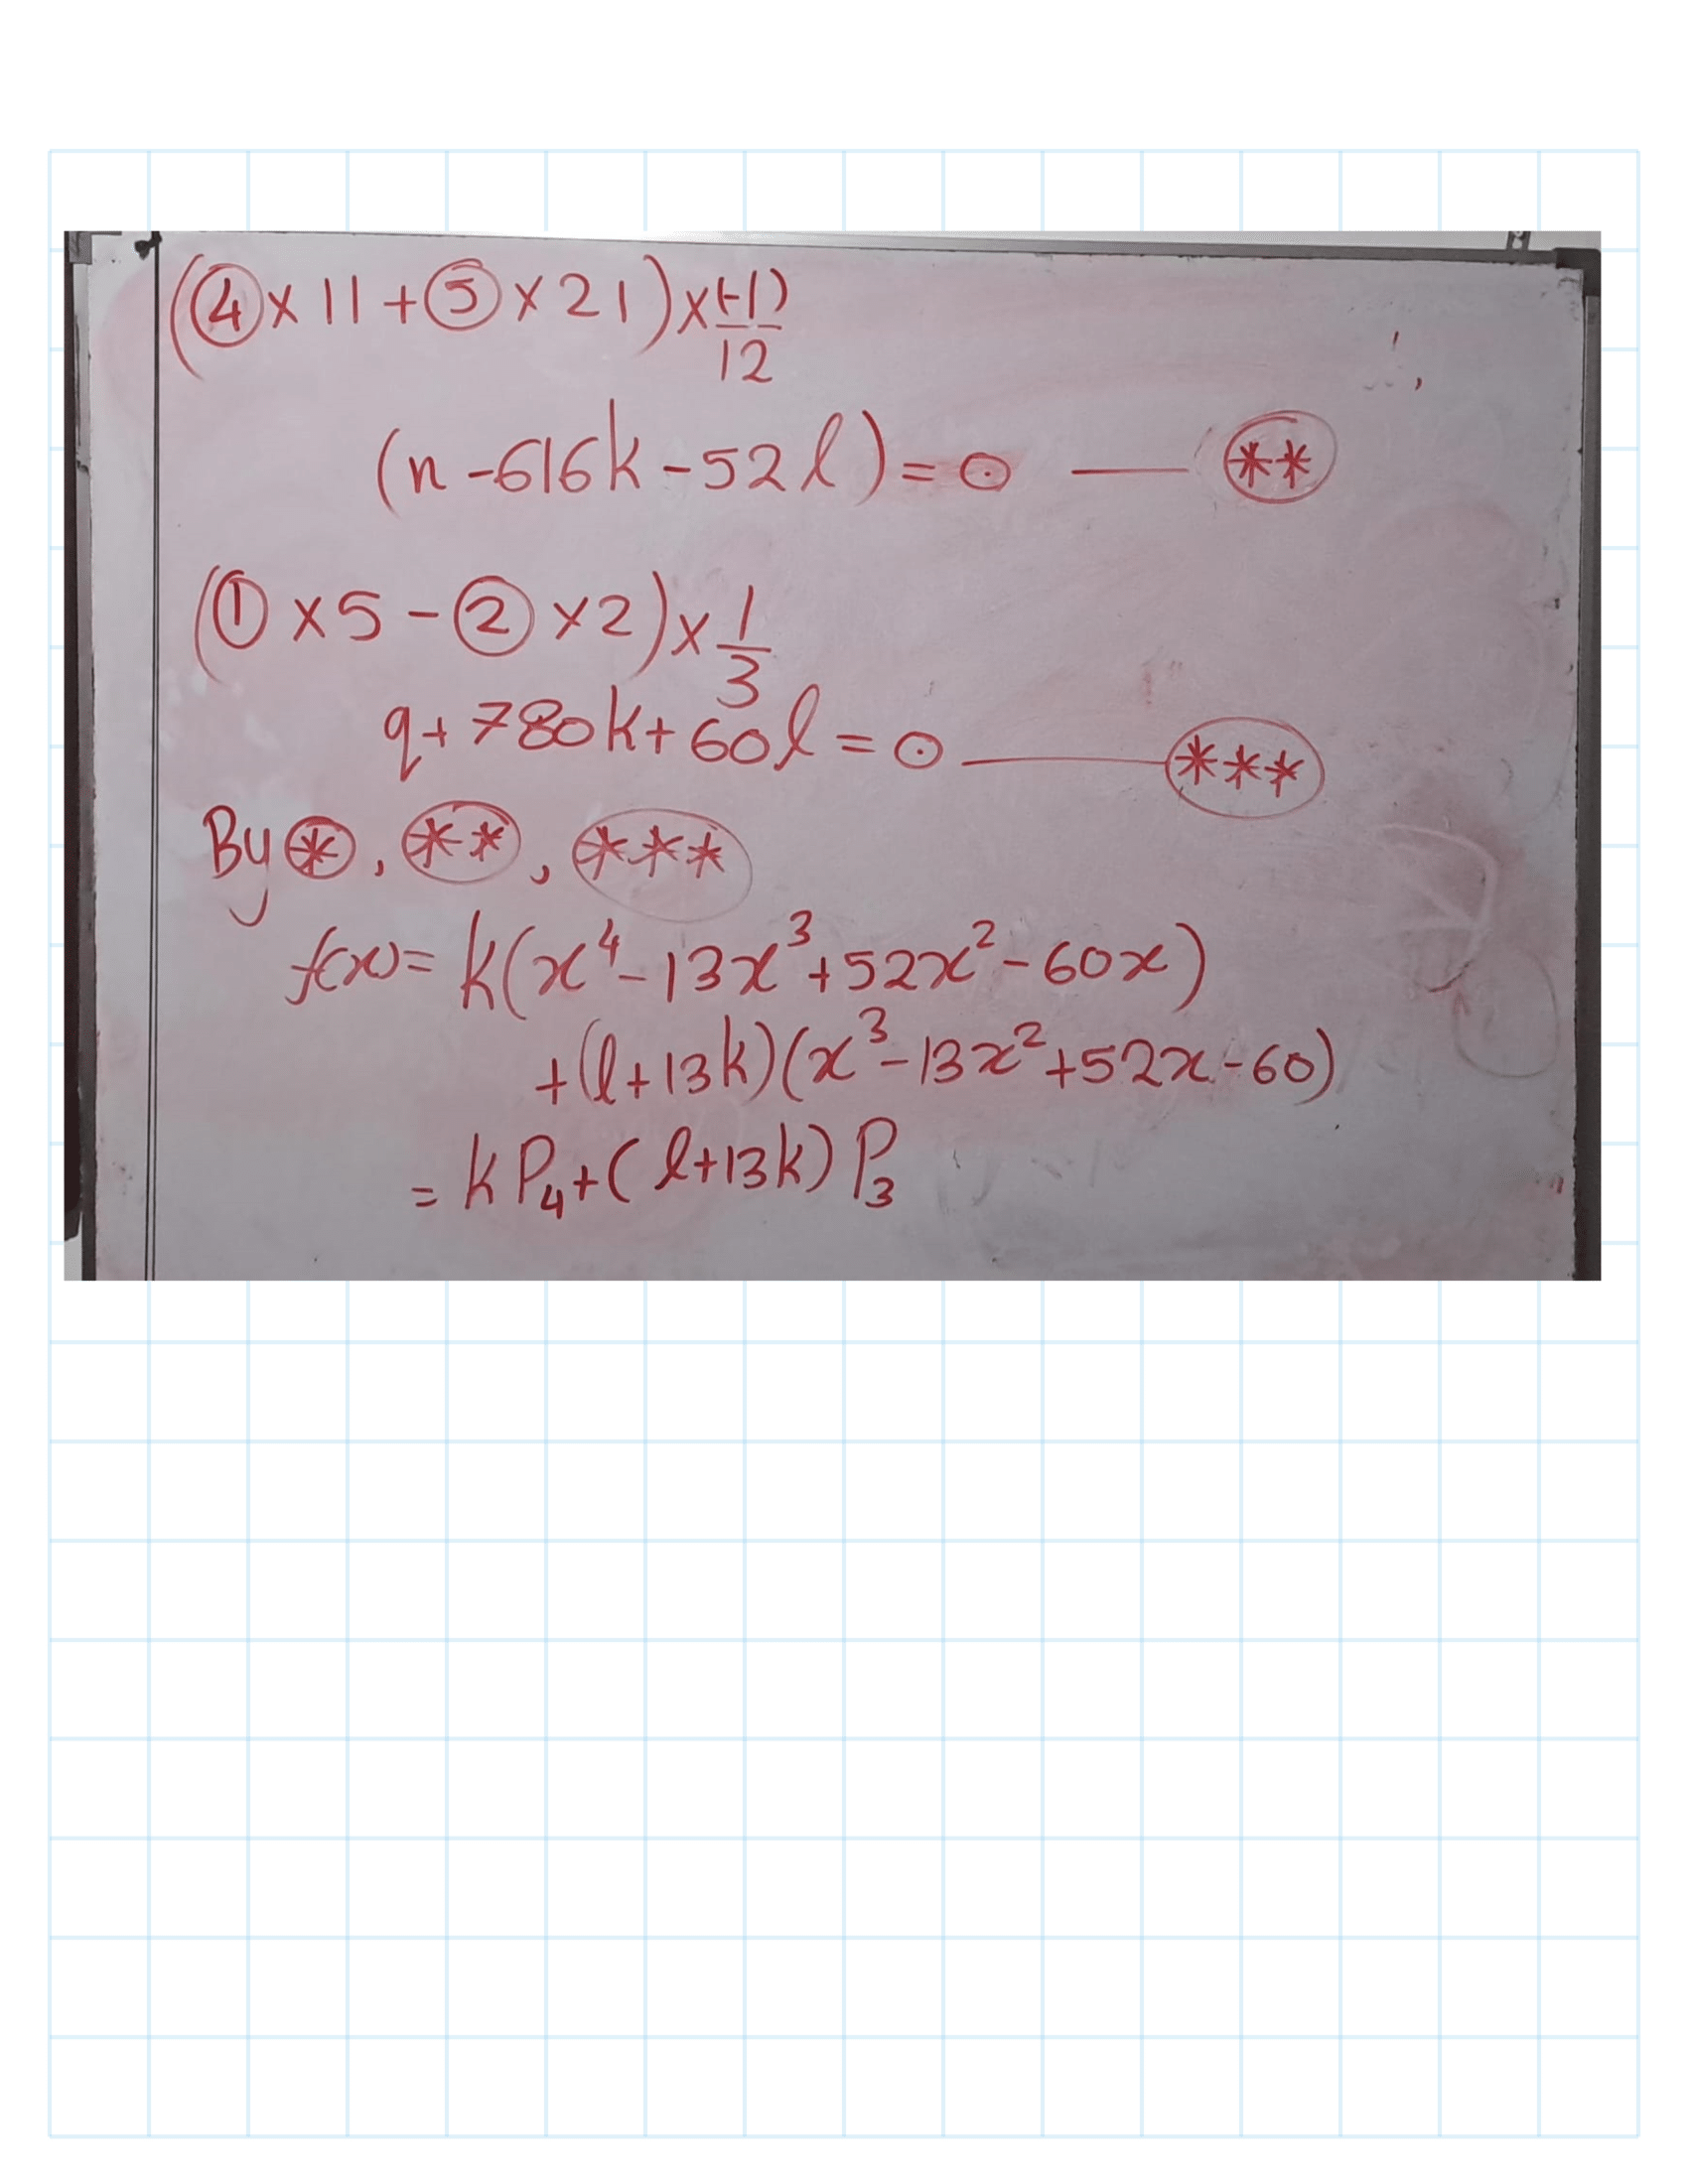 (④ × 11 + ⑤ × 21) × (-1)/12
(n - 616k - 52l) = 0 —— (**)
(① × 5 - ② × 2) × 1/3
q + 780k + 60l = 0 —— (***)
By (*), (**), (***)
f(x) = k(x⁴ - 13x³ + 52x² - 60x)
+ (l + 13k)(x³ - 13x² + 52x - 60)
= kP₄ + (l + 13k)P₃